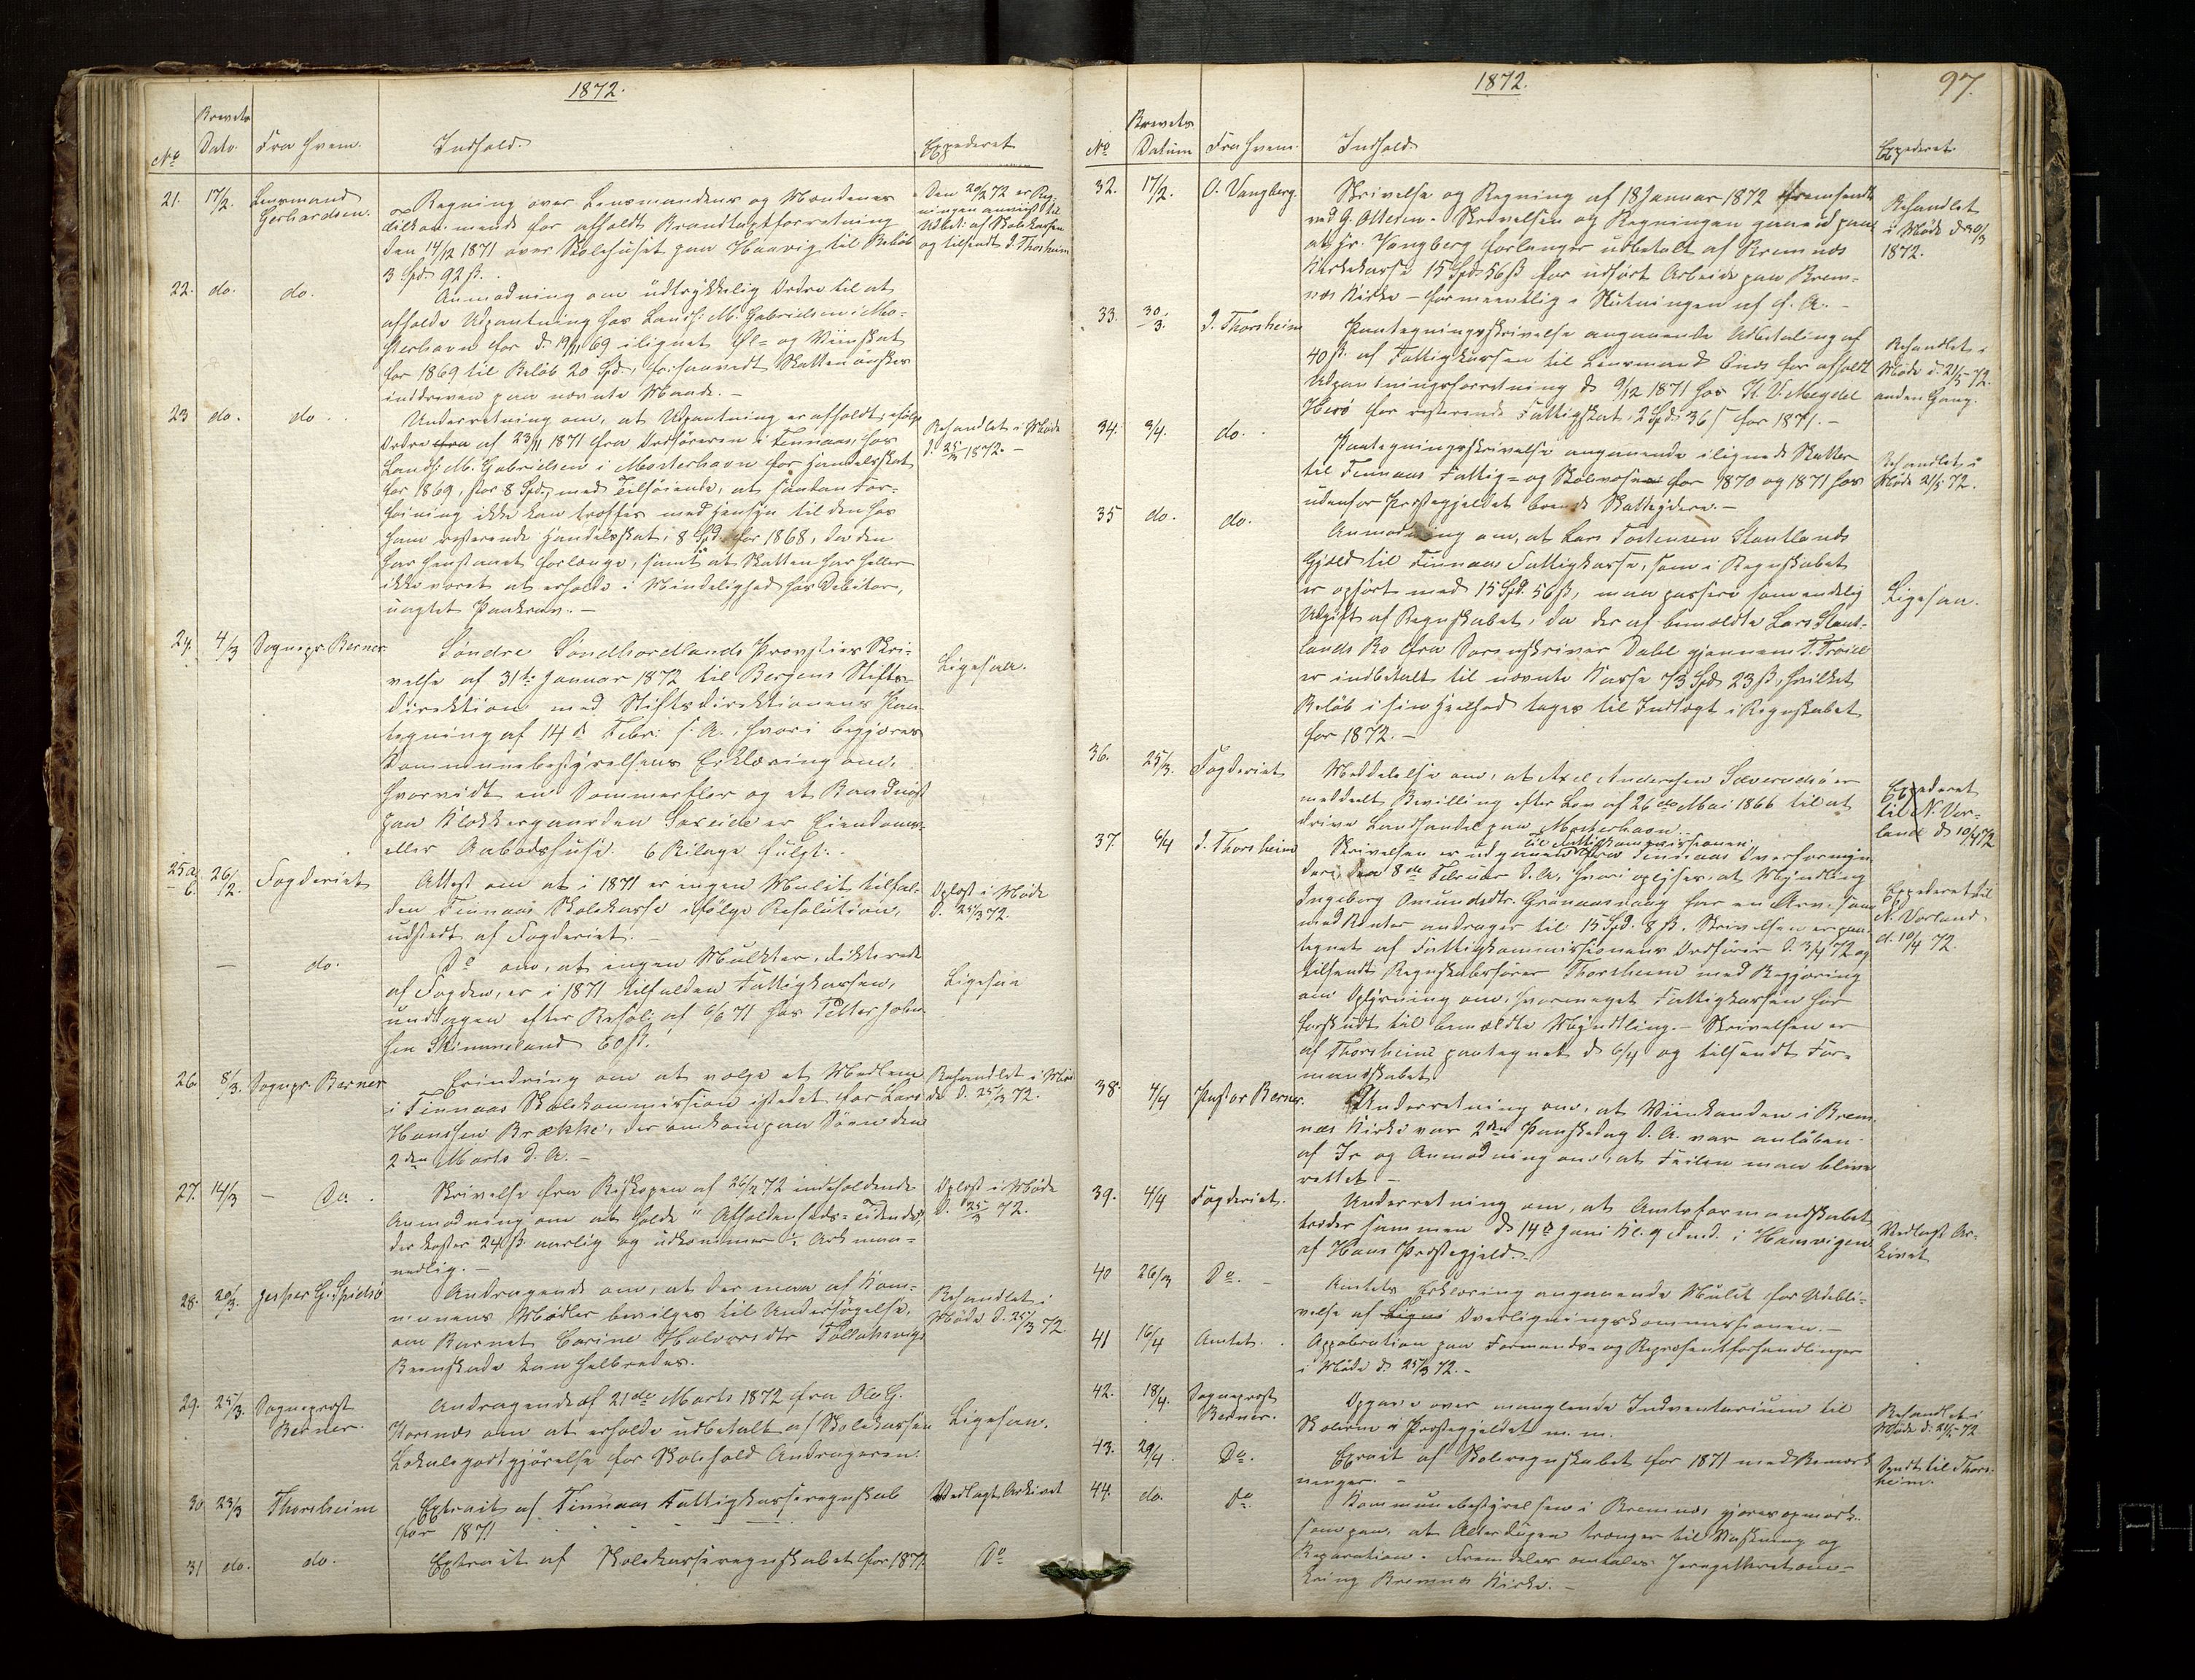 1872.
Brevets
No Dato. Fra hvem. Indhold. Expederet
21. 17/2. Lensmand Gerhardsen. Regning over Lensmandens og Mændenes
tilkommende for afholdt Brandtaxtforretning
den 14/12 1871 over Skolehuset paa Haavig til Beløb
3 Spd 92 ß.
Den 20/2 72 er Reg-
ningen anviist til
Udbet: af Skolekassen
og tilsendt I. Thorsheim
22. do. do. Anmodning om udtrykkelig Ordre til at
afholde Udpantning hos Landh: M. Gabrielsen i Mo-
sterhavn for d. 19/11 69 ilignet Øl- og Viinskat
for 1869 til Beløb 20 Spd, forsaavidt Skatten ønskes
inddreven paa nævnte Maade. -
23 do. do. Underretning om, at Udpantning er afholdt ifølge
Ordre fra af 23/11 1871 fra Ordføreren i Finnaas, hos
Landh: M. Gabrielsen i Mosterhavn for Handelsskat
for 1869, stor 8 Spd, med Tilføiende, at saadan For-
føining ikke kan træffes med Hensyn til den hos
ham resterende Handelsskat, 8 Spd for 1868, da den
har henstaaet forlænge, samt at Skatten har heller
ikke været at erholde i Mindelighed hos Debitor,
uagtet Paakrav. -
Behandlet i Møde
d. 25/3 1872. -
24. 4/3 Sognepr. Berner Søndre Søndhordlands Provsties Skri-
velse af 31te Januar 1872 til Bergens Stifts-
direktion med Stiftsdirektionens Paa-
tegning af 14d Febr: s. A., hvori begjæres
Kommunebestyrelsens Erklæring om,
hvorvidt en Sommerflor og et Baadnøst
paa Klokkergaarden Sæveide er Eiendoms-
eller Aabodshuse. 6 Bilage fulgt.
Ligesaa.
25 a. 26/2. Fogderiet Attest om at i 1871 er ingen Mulkt tilfal-
den Finnaas Skolekasse ifølge Resolution,
udstedt af Fogderiet.
Oplæst i Møde
d. 25/3 72.
- do. Do om, at ingen Mulkter, dikterede
af Fogden, er i 1871 tilfalden Fattigkassen,
undtagen efter Resol: af 6/6 71 hos Petter John-
sen Skimmeland 60 ß.
Ligesaa
26. 8/3. Sognepr. Berner Erindring om at vælge et Medlem
i Finnaas Skolekommission istedet for Lars
Hanssen Brække, der omkom paa Søen den
2den Marts d. A. -
Behandlet i Mø-
de d. 25/3 72.
27. 14/3 - Do. Skrivelse fra Biskopen af 26/2 72 indeholdende
Anmodning om at holde "Afholdenheds-Tidende",
der koster 24 ß. aarlig og udkommer ½ Ark maa-
nedlig. -
Oplæst i Møde
d. 25/3 72.
28. 20/3. Jesper G. Spidsø Andragende om, at der maa af Kom-
munens Midler bevilges til Undersøgelse,
om Barnet Carine Halvorsdtr Tollaksvigs
Beenskade kan helbredes.
Behandlet i
Møde d. 25/3 72.
29. 25/3. Sogneprest
Berner. Andragende af 21de Marts 1872 fra Ole G.
Korsnæs om at erholde udbetalt af Skolekassen
Lokalegodtgjørelse for Skolehold Andrageren.
Ligesaa.
30 23/3 Thorsheim Extrait af Finnaas Fattigkasseregnskab
for 1871
Vedlagt Arkivet
31 do. do. Extrait af Skolekasseregnskabet for 1871
Do
1872. 97.
Brevets
No Datum Fra hvem. Indhold. Expederet.
32. 17/2. O. Vangberg. Skrivelse og Regning af 18 Januar 1872 fremsendt
ved G. Ollesen. Skrivelsen og Regningen gaaer ud paa
at Hr. Vangberg forlanger udbetalt af Bremnæs
Kirkekasse 15 Spd. 56 ß for udført Arbeide paa Brem-
næs Kirke - formeentlig i Slutningen af f. A. -
Behandlet
i Møde d. 30/3
1872.
33. 30/3. I. Thorsheim Paategningsskrivelse angaaende Udbetaling af
40 ß. af Fattigkassen til Lensmand EneS for afholdt
Udpantningsforretning d. 9/12 1871 hos K. V. Meydel
Herø for resterende Fattigskat, 2 Spd. 36 ß for 1871. -
Behandlet i
Møde d. 21/5 72.
anden Gang.
34. 3/4. do. Paategningsskrivelse angaaende ilignede Skatter
til Finnaas Fattig- og Skolevæsen for 1870 og 1871 hos
udenfor Præstegjeldet boende Skatteydere. -
Behandlet i
Møde 21/5 72.
35 do. do. Anmodning om, at Lars Tostensen Stautlands
Gjæld til Finnaas Fattigkasse, som i Regnskabet
er opført med 15 Spd. 56 ß, maa passere som endelig
Udgift af Regnskabet, da der af bemeldte Lars Staut-
lands Bo fra Sorenskriver Dahl gjennem T. Troiel
er indbetalt til nævnte Kasse 73 Spd 23 ß, hvilket
Beløb i sin Heelhed tages til Indtægt i Regnskabet
for 1872. -
Ligesaa.
36. 25/3. Fogderiet Meddelelse om, at Axel Andersen Sæverudsø er
meddeelt Bevilling efter Lov af 26de Mai 1866 til at
drive Landhandel paa Mosterhavn.
Expederet
til N. Vor-
land d. 10/4 72
37. 6/4 I. Thorsheim til Fattigkommissionen,
Skrivelsen er udgaaet fra Finnaas Overformyn-
deri den 8de Februar d. A, hvori oplyses, at Myndling
Ingeborg Omundsdtr. Grønaasvaag har en Arv, som
med Renter andrager til 15 Spd. 8 ß. Skrivelsen er paa-
tegnet af Fattigkommissionens Ordfører d. 3/4 72 og
tilsendt Regnskabsfører Thorsheim med Begjæring
om Oplysning om, hvormeget Fattigkassen har
forskudt til bemeldte Myndling. - Skrivelsen er
af Thorsheim paategnet d. 6/4 og tilsendt For-
mandskabet.
Expederet til
N. Vorland
d. 10/4 72.
38. 4/4 Pastor Berner. Underretning om, at Viinkanden i Brem-
næs Kirke var 2den Paaskedag d. A. var anløben
af Ir og Anmodning om, at Feilen maa blive
rettet. -
39. 4/4 Fogderiet. Underretning om, at Amtsformandskabet
træder sammen d. 14d Juni Kl. 9 Fmd. i Hamvigen
af Haus Præstegjeld.
Vedlagt Ar-
kivet
40 26/3 Do. - Amtets Erklæring angaaende Mulkt for Udebli-
velse af Ligni Overligningskommissionen. -
41 16/4 Amtet. Approbation paa Formands- og Repræsentforhandlinger
i Møde d. 25/3 72. -
42. 18/4. Sogneprest
Berner. Opgave over manglende Indventarium til
Skolerne i Præstegjeldet m. m.
Behandlet i
Møde d. 21/5 72
43. 29/4. Do. Extrait af Skoleregnskabet for 1871 med Bemærk-
ninger. -
Sendt til Thors-
heim.
44. do. do Kommunebestyrelsen i Bremnæs gjøres opmærk-
som paa, at Alterdugen trænger til Vaskning og
Reparation. Fremdeles omtales Jerngitteret om-
kring Bremnæs Kirke. -